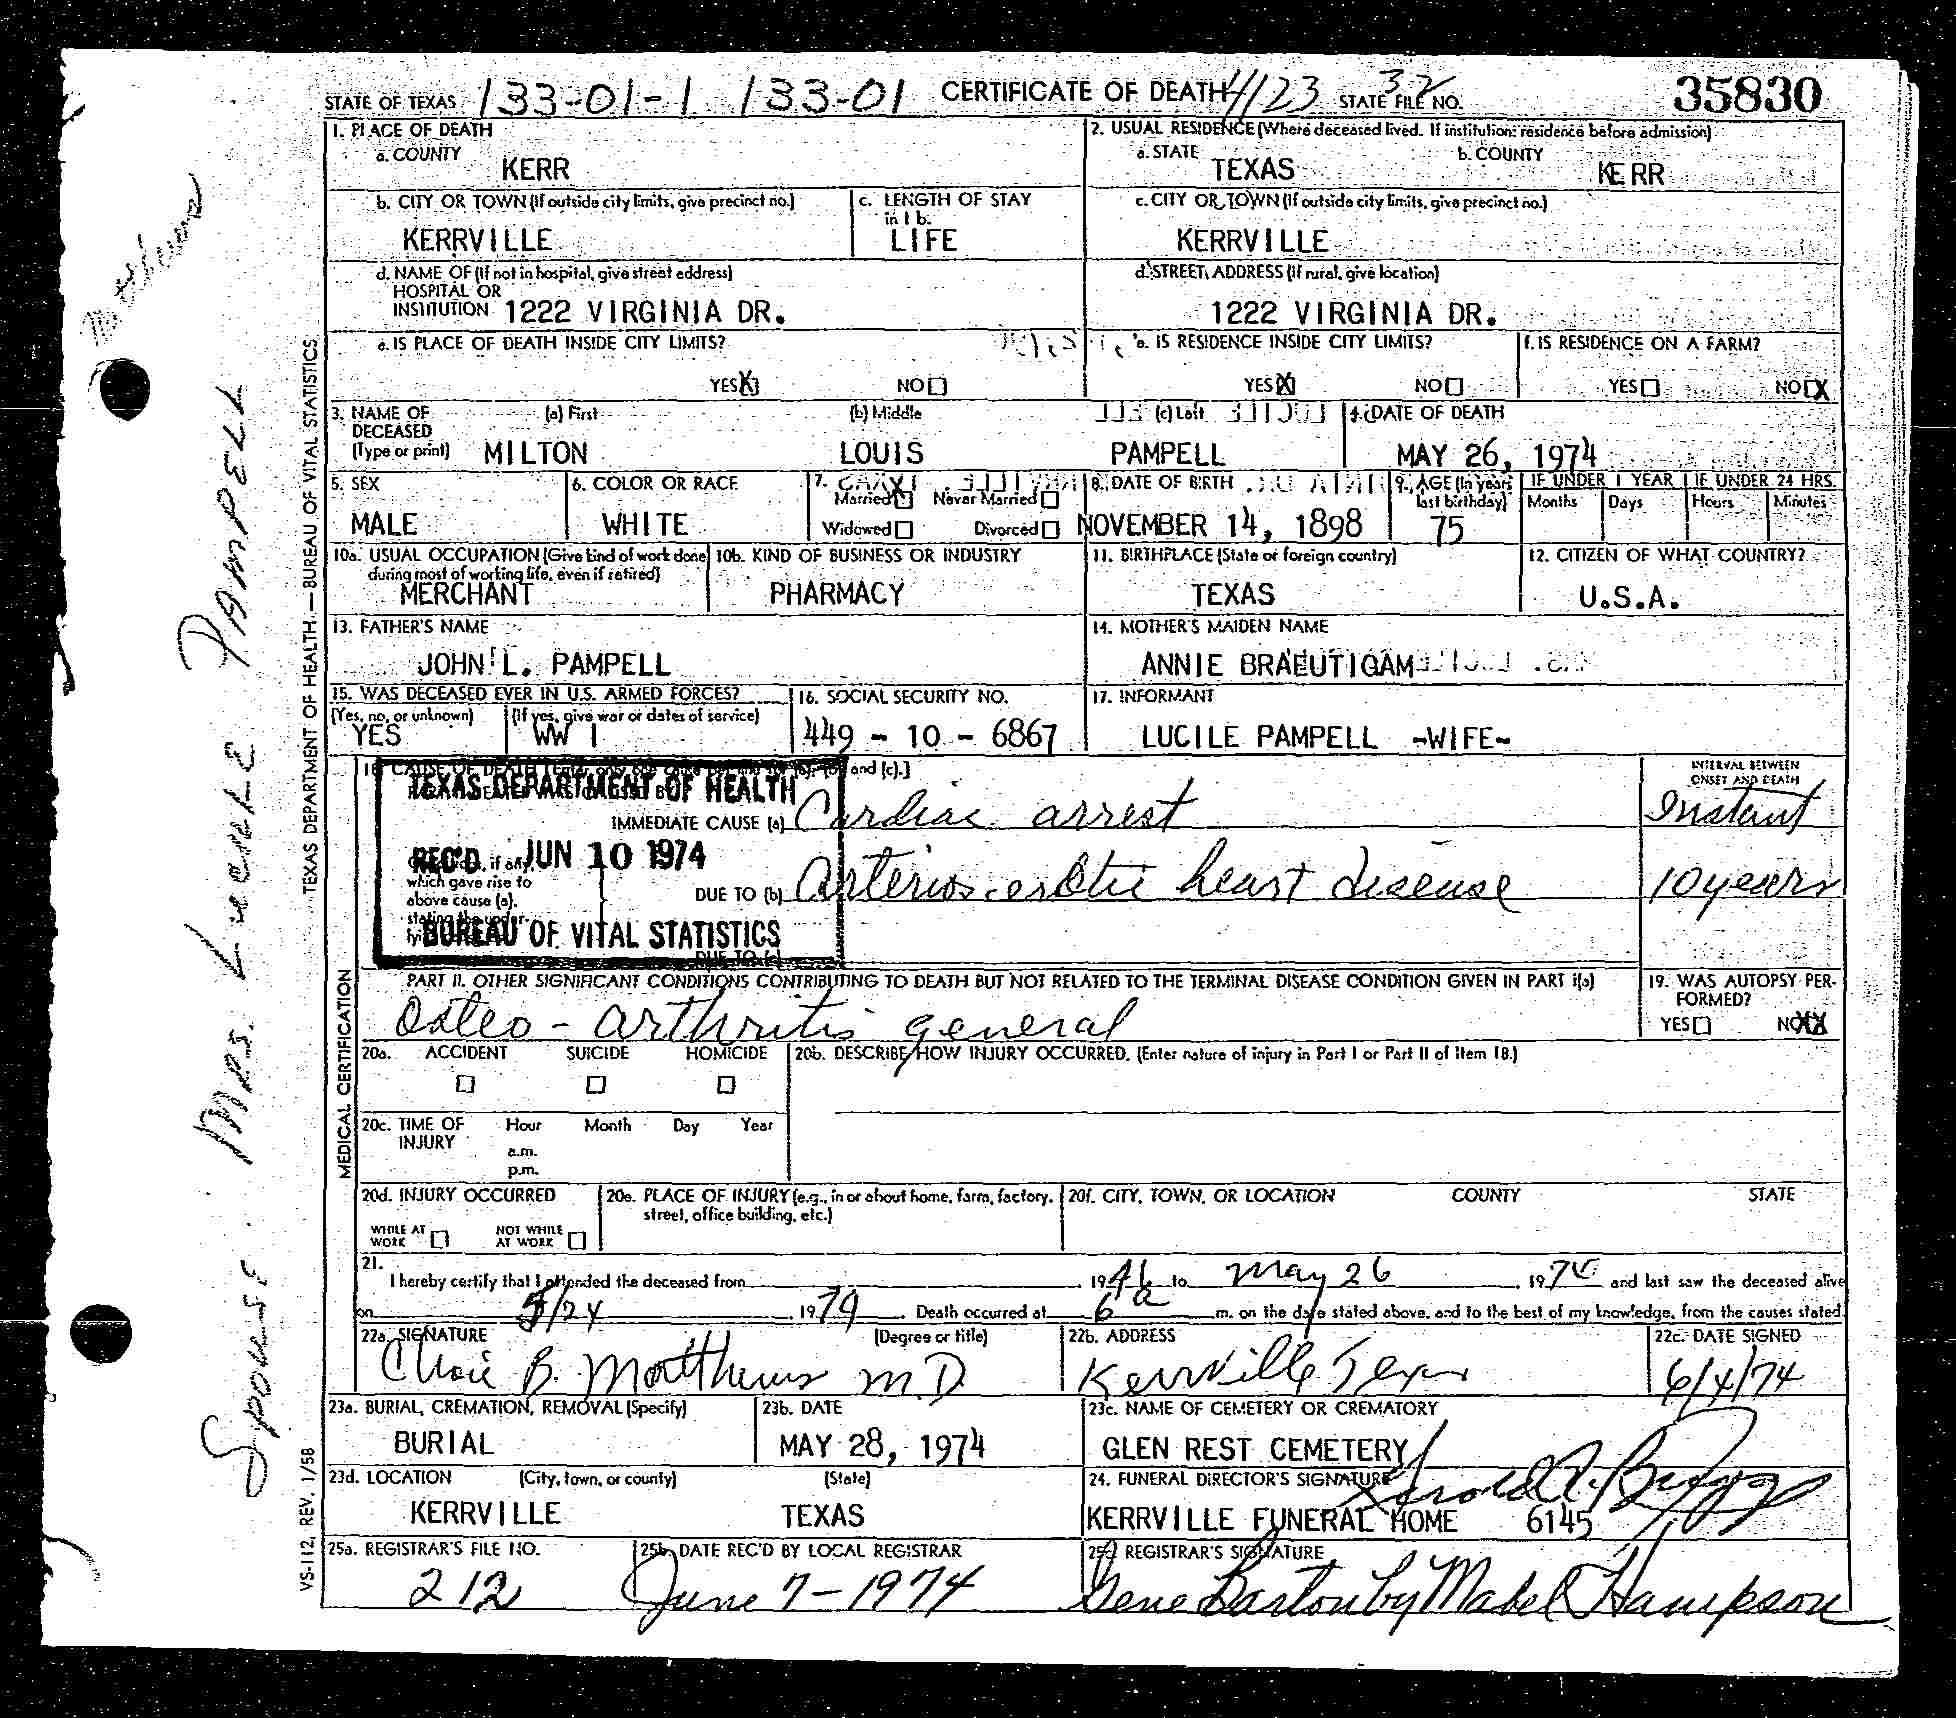 STATE OF TEXAS 133-01-1 133-01 CERTIFICATE OF DEATH 4123 STATE FILE NO. 32 35830
1. PLACE OF DEATH
a. COUNTY
KERR
2. USUAL RESIDENCE (Where deceased lived. If institution: residence before admission)
a. STATE
TEXAS
b. COUNTY
KERR
b. CITY OR TOWN (If outside city limits, give precinct no.)
KERRVILLE
c. LENGTH OF STAY
in 1 b.
LIFE
c. CITY OR TOWN (If outside city limits, give precinct no.)
KERRVILLE
d. NAME OF (If not in hospital, give street address)
HOSPITAL OR
INSTITUTION 1222 VIRGINIA DR.
d. STREET ADDRESS (If rural, give location)
1222 VIRGINIA DR.
e. IS PLACE OF DEATH INSIDE CITY LIMITS?
YES X NO
e. IS RESIDENCE INSIDE CITY LIMITS?
YES X NO
f. IS RESIDENCE ON A FARM?
YES NO X
3. NAME OF
DECEASED
(Type or print)
(a) First
MILTON
(b) Middle
LOUIS
(c) Last
PAMPELL
4. DATE OF DEATH
MAY 26, 1974
5. SEX
MALE
6. COLOR OR RACE
WHITE
7.
Married X Never Married
Widowed Divorced
8. DATE OF BIRTH
NOVEMBER 14, 1898
9. AGE (In years
last birthday)
75
IF UNDER 1 YEAR IF UNDER 24 HRS.
Months Days Hours Minutes
10a. USUAL OCCUPATION (Give kind of work done
during most of working life, even if retired)
MERCHANT
10b. KIND OF BUSINESS OR INDUSTRY
PHARMACY
11. BIRTHPLACE (State or foreign country)
TEXAS
12. CITIZEN OF WHAT COUNTRY?
U.S.A.
13. FATHER'S NAME
JOHN L. PAMPELL
14. MOTHER'S MAIDEN NAME
ANNIE BRAEUTIGAM
15. WAS DECEASED EVER IN U.S. ARMED FORCES?
(Yes, no, or unknown) (If yes, give war or dates of service)
YES WW I
16. SOCIAL SECURITY NO.
449 - 10 - 6867
17. INFORMANT
LUCILE PAMPELL -WIFE-
and (c).]
INTERVAL BETWEEN
ONSET AND DEATH
TEXAS DEPARTMENT OF HEALTH
IMMEDIATE CAUSE (a) Cardiac arrest Instant
REC'D JUN 10 1974
which gave rise to
above cause (a),
DUE TO (b) Arteriosclerotic heart disease 10 years
BUREAU OF VITAL STATISTICS
DUE TO (c)
PART II. OTHER SIGNIFICANT CONDITIONS CONTRIBUTING TO DEATH BUT NOT RELATED TO THE TERMINAL DISEASE CONDITION GIVEN IN PART I(a)
Osteo-arthritis general
19. WAS AUTOPSY PER-
FORMED?
YES NO XX
20a. ACCIDENT SUICIDE HOMICIDE
20b. DESCRIBE HOW INJURY OCCURRED. (Enter nature of injury in Part I or Part II of Item 18.)
20c. TIME OF
INJURY
Hour Month Day Year
a.m.
p.m.
20d. INJURY OCCURRED
WHILE AT
WORK
NOT WHILE
AT WORK
20e. PLACE OF INJURY (e.g., in or about home, farm, factory,
street, office building, etc.)
20f. CITY, TOWN, OR LOCATION COUNTY STATE
21.
I hereby certify that I attended the deceased from 1946 to May 26 1974 and last saw the deceased alive
on 5/24 1974. Death occurred at 6 a m. on the date stated above, and to the best of my knowledge, from the causes stated.
22a. SIGNATURE (Degree or title)
B. Matthews M.D.
22b. ADDRESS
Kerrville Texas
22c. DATE SIGNED
6/4/74
23a. BURIAL, CREMATION, REMOVAL (Specify)
BURIAL
23b. DATE
MAY 28, 1974
23c. NAME OF CEMETERY OR CREMATORY
GLEN REST CEMETERY
23d. LOCATION (City, town, or county) (State)
KERRVILLE TEXAS
24. FUNERAL DIRECTOR'S SIGNATURE
KERRVILLE FUNERAL HOME 6145
25a. REGISTRAR'S FILE NO.
212
25b. DATE REC'D BY LOCAL REGISTRAR
June 7-1974
25c. REGISTRAR'S SIGNATURE
Gene Barton by Mabel Hampson
TEXAS DEPARTMENT OF HEALTH — BUREAU OF VITAL STATISTICS
MEDICAL CERTIFICATION
VS-112, REV. 1/58
Spouse Mrs. Lucile PAMPELL